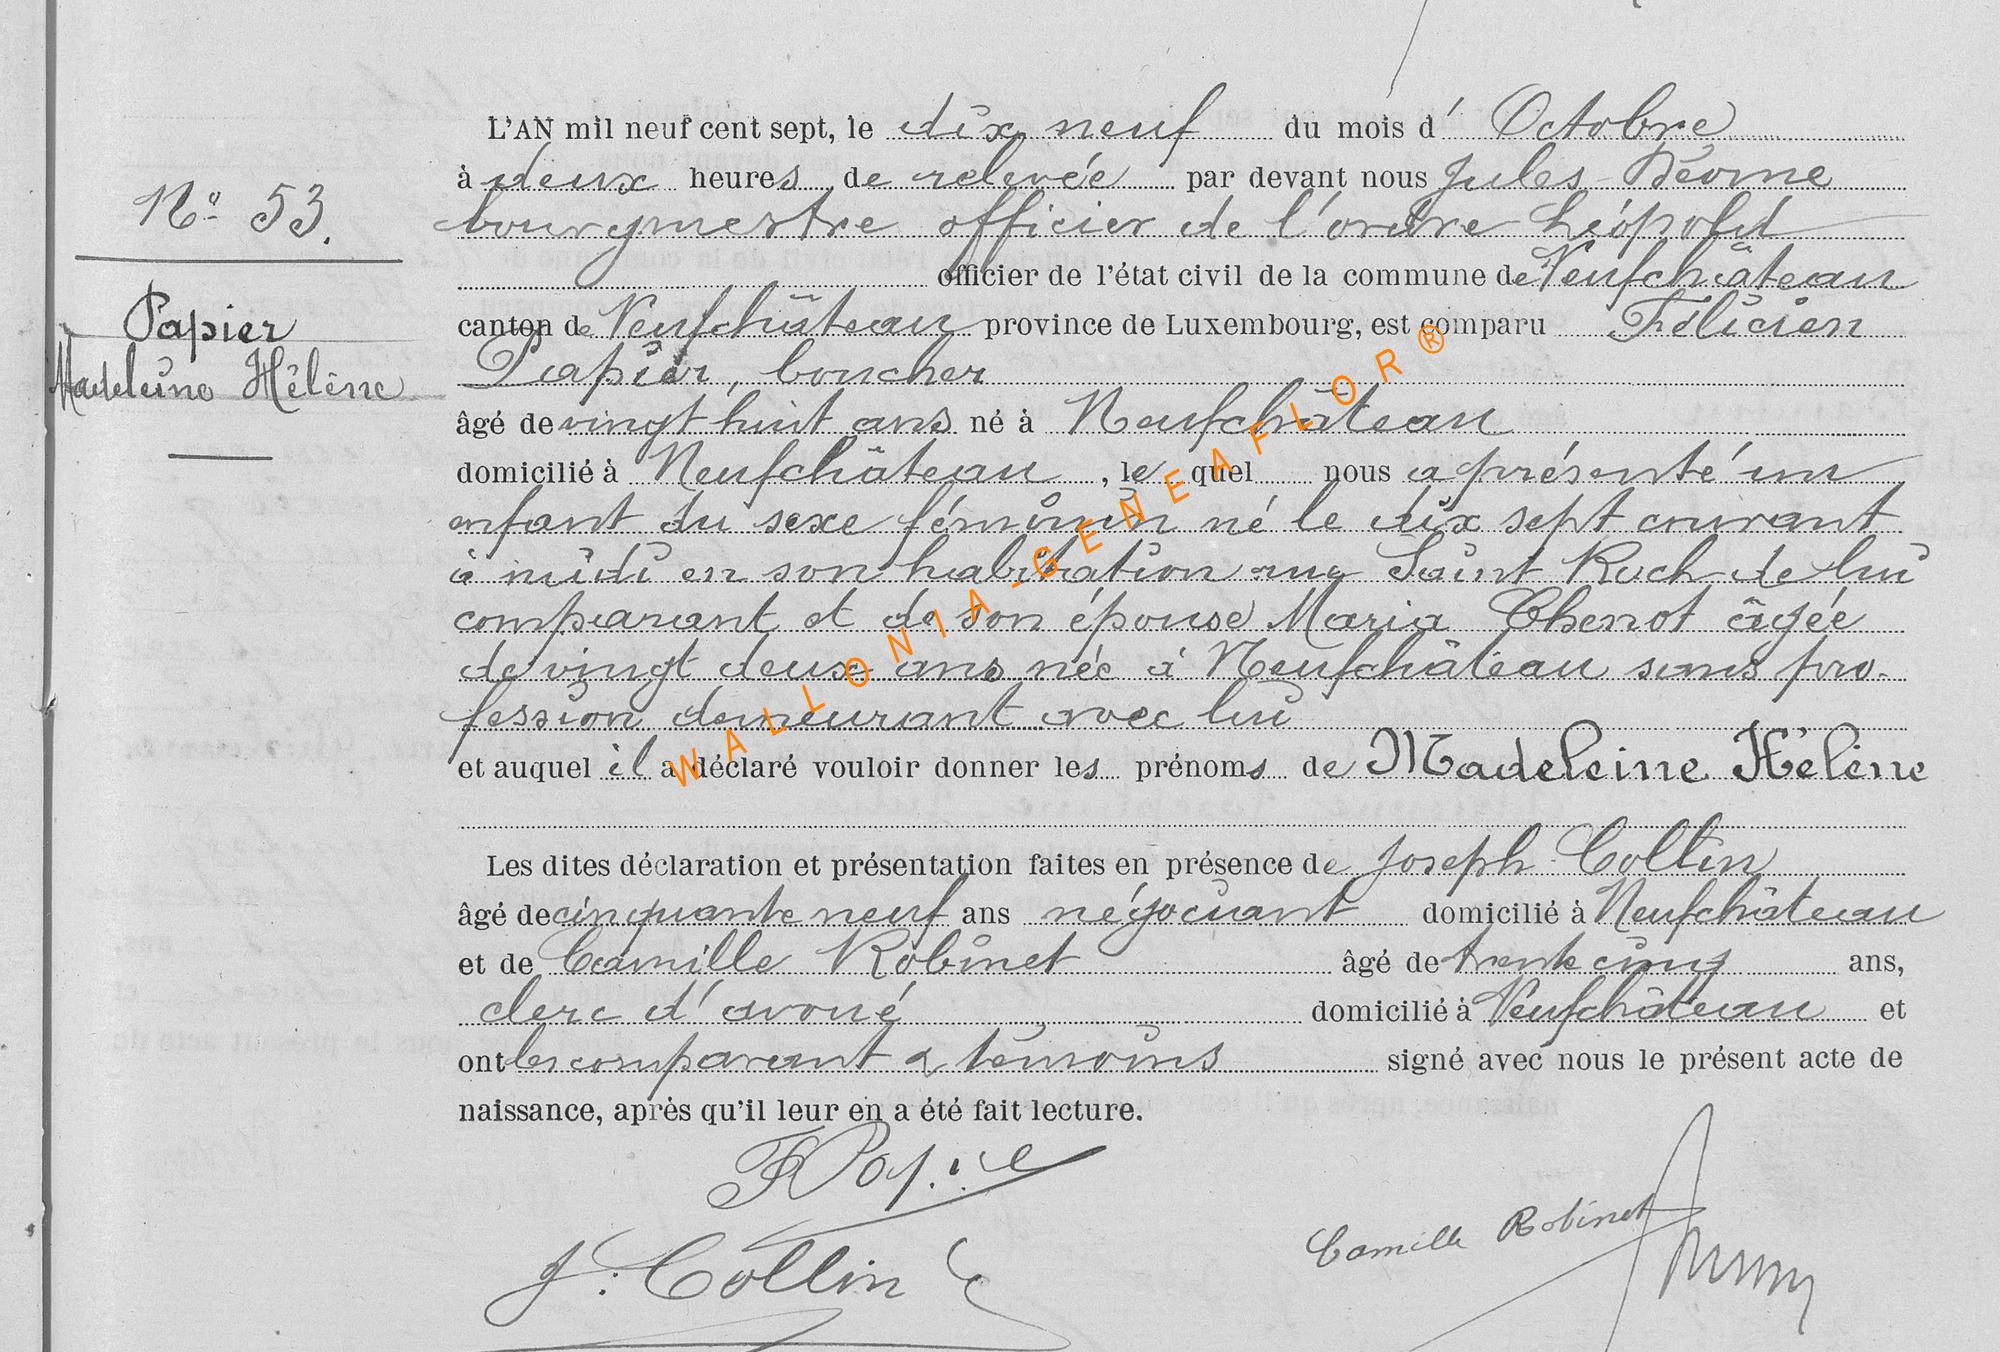 L'AN mil neuf cent sept, le dix neuf du mois d' Octobre
à deux heures de relevée par devant nous Jules
N° 53.
bourgmestre officier de l'ordre Léopold
officier de l'état civil de la commune de Neufchâteau
canton de Neufchâteau province de Luxembourg, est comparu Félicien
Papier
Papier, boucher
Madeleine Hélène
âgé de vingt huit ans né à Neufchâteau
domicilié à Neufchâteau, le quel nous a présenté un
enfant du sexe féminin né le dix sept courant
à midi en son habitation rue Saint Roch de lui
comparant et de son épouse Maria Chenot âgée
de vingt deux ans née à Neufchâteau sans pro-
fession demeurant avec lui
et auquel il a déclaré vouloir donner les prénoms de Madeleine Hélène
Les dites déclaration et présentation faites en présence de Joseph Collin
âgé de cinquante neuf ans négociant domicilié à Neufchâteau
et de Camille Robinet âgé de trente cinq ans,
clerc d'avoué domicilié à Neufchâteau et
ont les comparant & témoins signé avec nous le présent acte de
naissance, après qu'il leur en a été fait lecture.
F Papier
J. Collin
Camille Robinet
WALLONIA-GENEAFLOR®